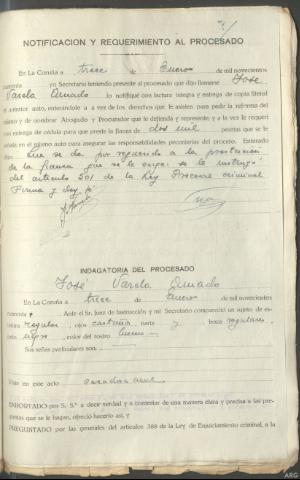 NOTIFICACION Y REQUERIMIENTO AL PROCESADO
En La Coruña a trece de Enero de mil novecientos
yo Secretario teniendo presente al procesado que dijo llamarse José
Varela Amado le notifiqué con lectura íntegra y entrega de copia literal
el anterior auto, enterándole a de los derechos que le asisten para pedir la reforma del
mismo y de nombrar Abogado y Procurador que le defienda y represente; y a la vez le requerí
con entrega de cédula para que preste la fianza de dos mil pesetas que se le
señala en el mismo auto para asegurar las responsabilidades pecuniarias del proceso. Enterado
dijo: Que se da por requerido a la prestación
de la fianza que se le exige se le instruye
del artículo 501 de la Ley Procesal criminal
Firma y doy fé
INDAGATORIA DEL PROCESADO
José Varela Amado
En La Coruña a trece de Enero de mil novecientos
Ante el Sr. Juez de Instrucción y mi Secretario compareció un sujeto de es-
tatura regular, ojos castaña nariz y boca regulares
pelo negro, color del rostro bueno
Sus señas particulares son:
Viste en este acto
EXHORTADO por S. S.ª a decir verdad y a contestar de una manera clara y precisa a las pre-
guntas que se le hagan, ofreció hacerlo así, y
PREGUNTADO por las generales del artículo 388 de la Ley de Enjuiciamiento criminal, a la
ARG